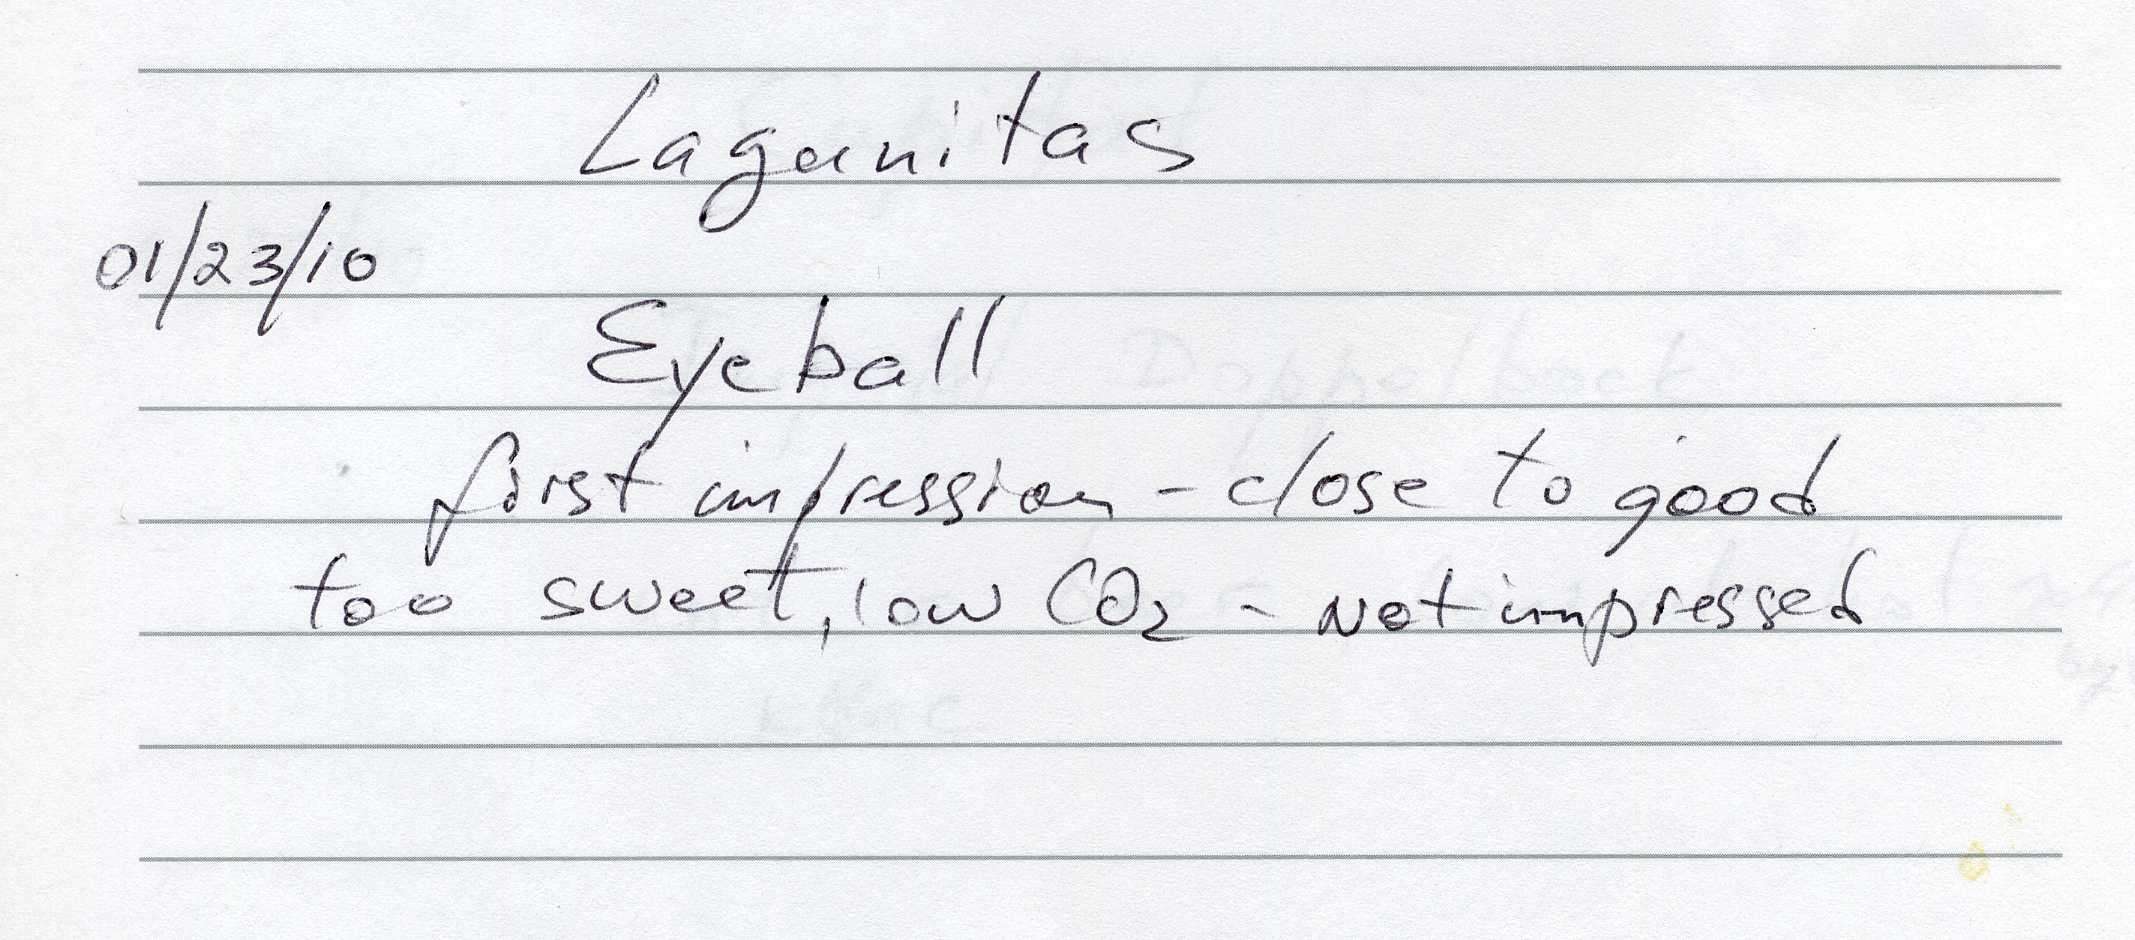 Lagunitas
01/23/10
Eyeball
first impression - close to good
too sweet, low CO2 - Not impressed
Doppelbock